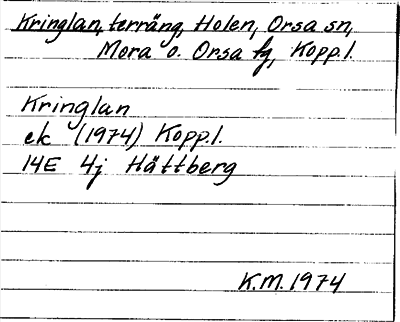 Kringlan, terräng, Holen, Orsa sn,
Mora o. Orsa fg, Kopp.l.
Kringlan
ek (1974) Kopp.l.
14E 4j Hättberg
K.M. 1974